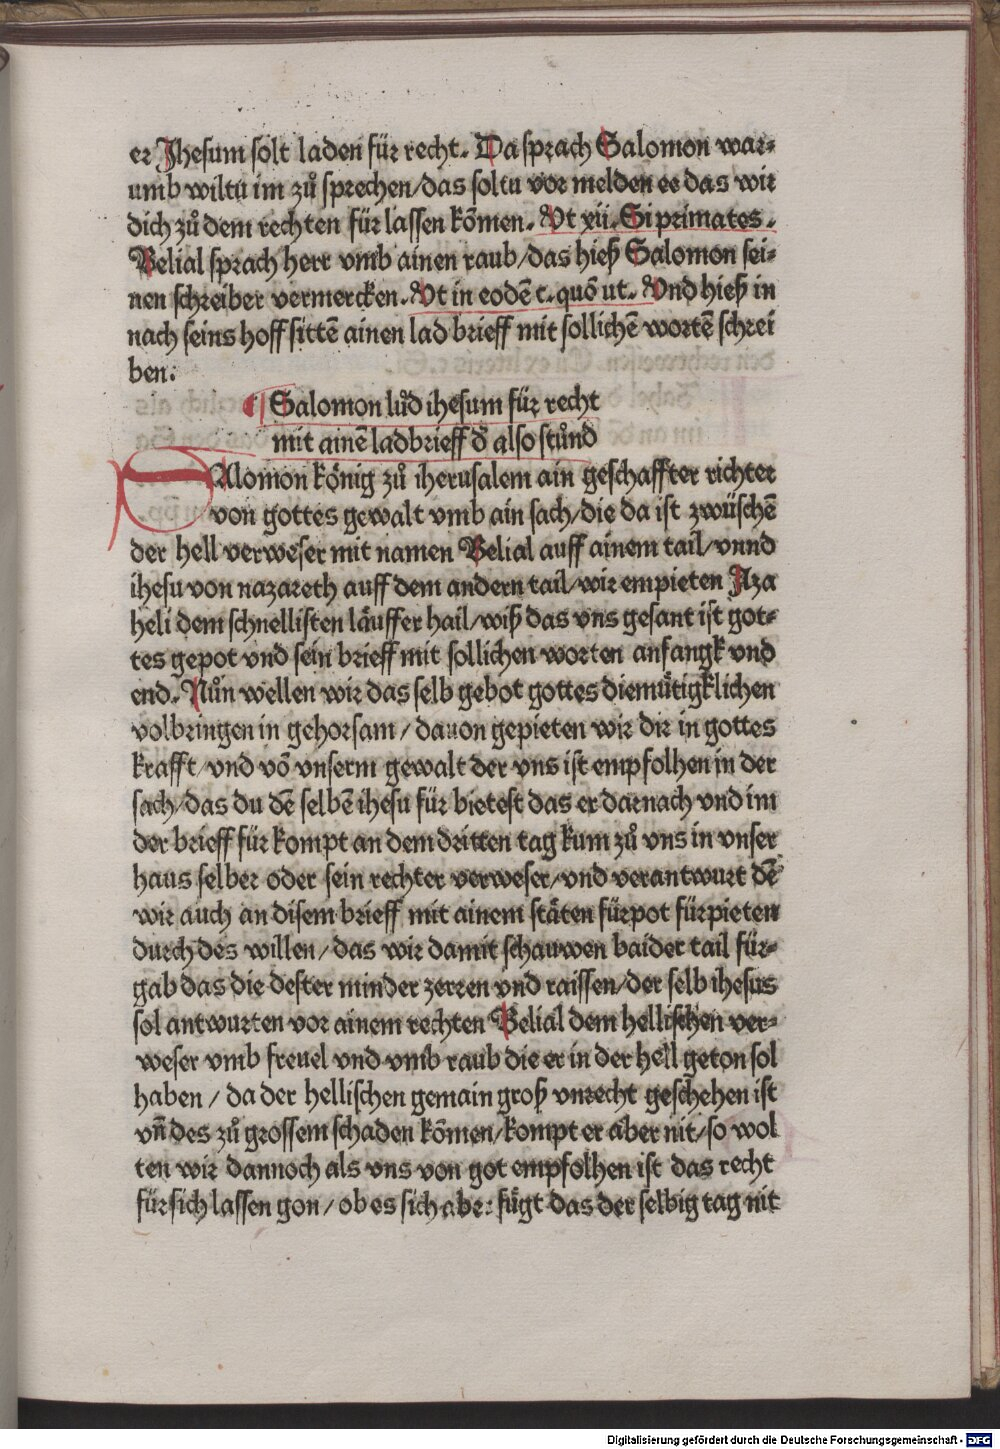 er Jhesum solt laden für recht. Da sprach Salomon war⸗
umb wiltu im zů sprechen/das soltu vor melden ee das wir
dich zů dem rechten für lassen kōmen. Vt xii. Si primates.
Belial sprach herr vmb ainen raub/das hieß Salomon sei⸗
nen schreiber vermercken. Vt in eodē c. quō ut. Vnd hieß in
nach seins hoff sittē ainen lad brieff mit sollichē wortē schrei
ben:
Salomon lůd ihesum für recht
mit ainē ladbrieff đ also stůnd
SAlomon könig zů iherusalem ain geschaffter richter
von gottes gewalt vmb ain sach/die da ist zwüschē
der hell verweser mit namen Belial auff ainem tail/vnnd
ihesu von nazareth auff dem andern tail/wir empieten Aza
heli dem schnellisten läuffer hail/wiß das vns gesant ist got⸗
tes gepot vnd sein brieff mit sollichen worten anfangk vnd
end. Nůn wellen wir das selb gebot gottes diemütigklichen
volbringen in gehorsam/dauon gepieten wir dir in gottes
krafft/vnd vō vnserm gewalt der vns ist empfolhen in der
sach/das du dē selbē ihesu für bietest das er darnach vnd im
der brieff für kompt an dem dritten tag kum zů vns in vnser
haus selber oder sein rechter verweser/vnd verantwurt dē
wir auch an disem brieff mit ainem stäten fürpot fürpieten
durch des willen/das wir damit schauwen baider tail für⸗
gab das die dester minder zerren vnd raissen/der selb ihesus
sol antwurten vor ainem rechten Belial dem hellischen ver⸗
weser vmb freuel vnd vmb raub die er in der hell geton sol
haben/da der hellischen gemain groß vnrecht geschehen ist
vn̄ des zů grossem schaden kōmen/kompt er aber nit/so wol
ten wir dannoch als vns von got empfolhen ist das recht
für sich lassen gon/ob es sich aber fügt das der selbig tag nit
Digitalisierung gefördert durch die Deutsche Forschungsgemeinschaft - DFG